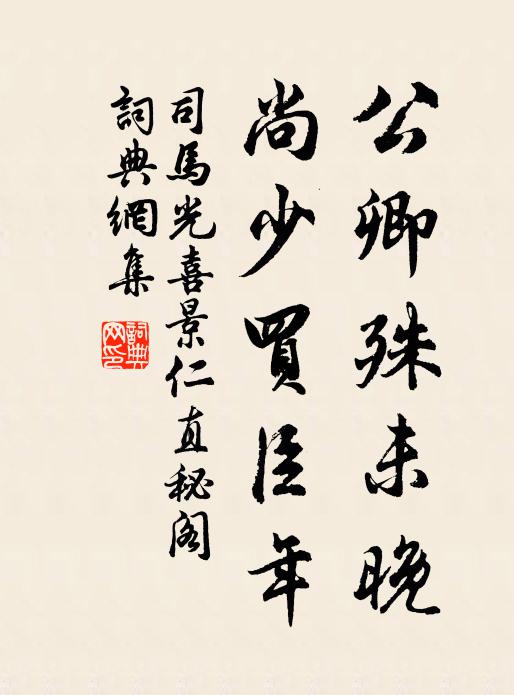 公卿殊未晚
尚少買臣年
司馬光喜景仁直秘閣
詞典網集
詞典网印